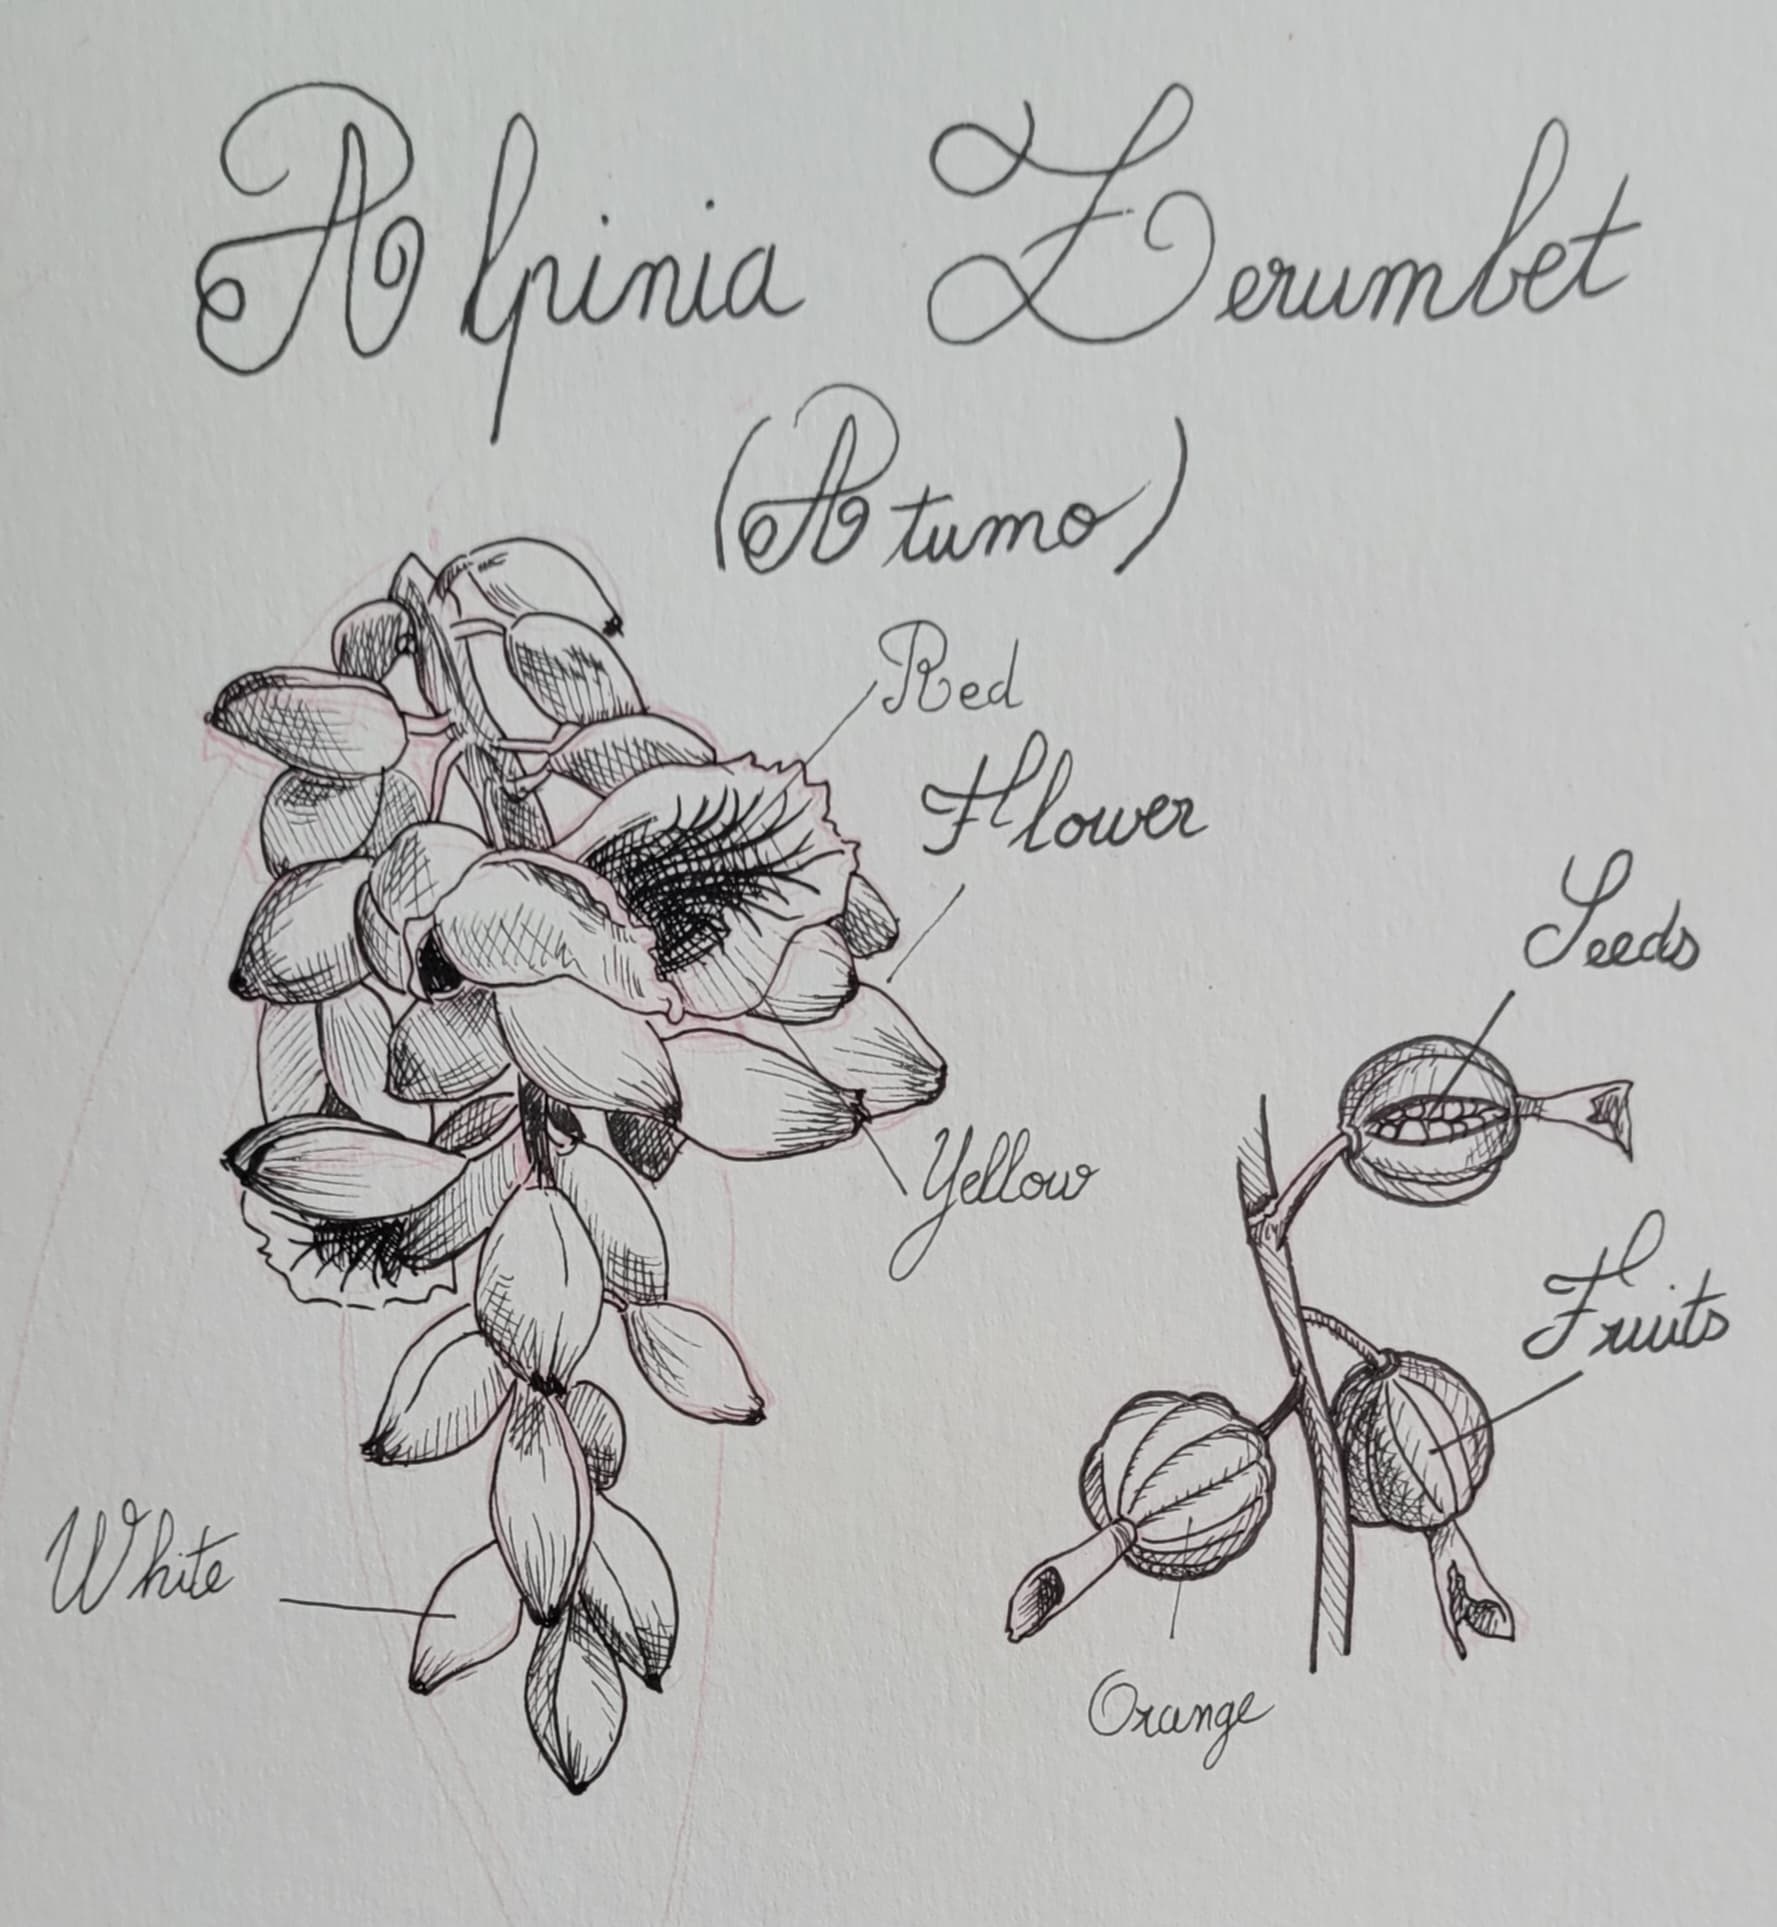 Alpinia Zerumbet
(Atumo)
Red
Flower
Seeds
Yellow
Fruits
White
Orange